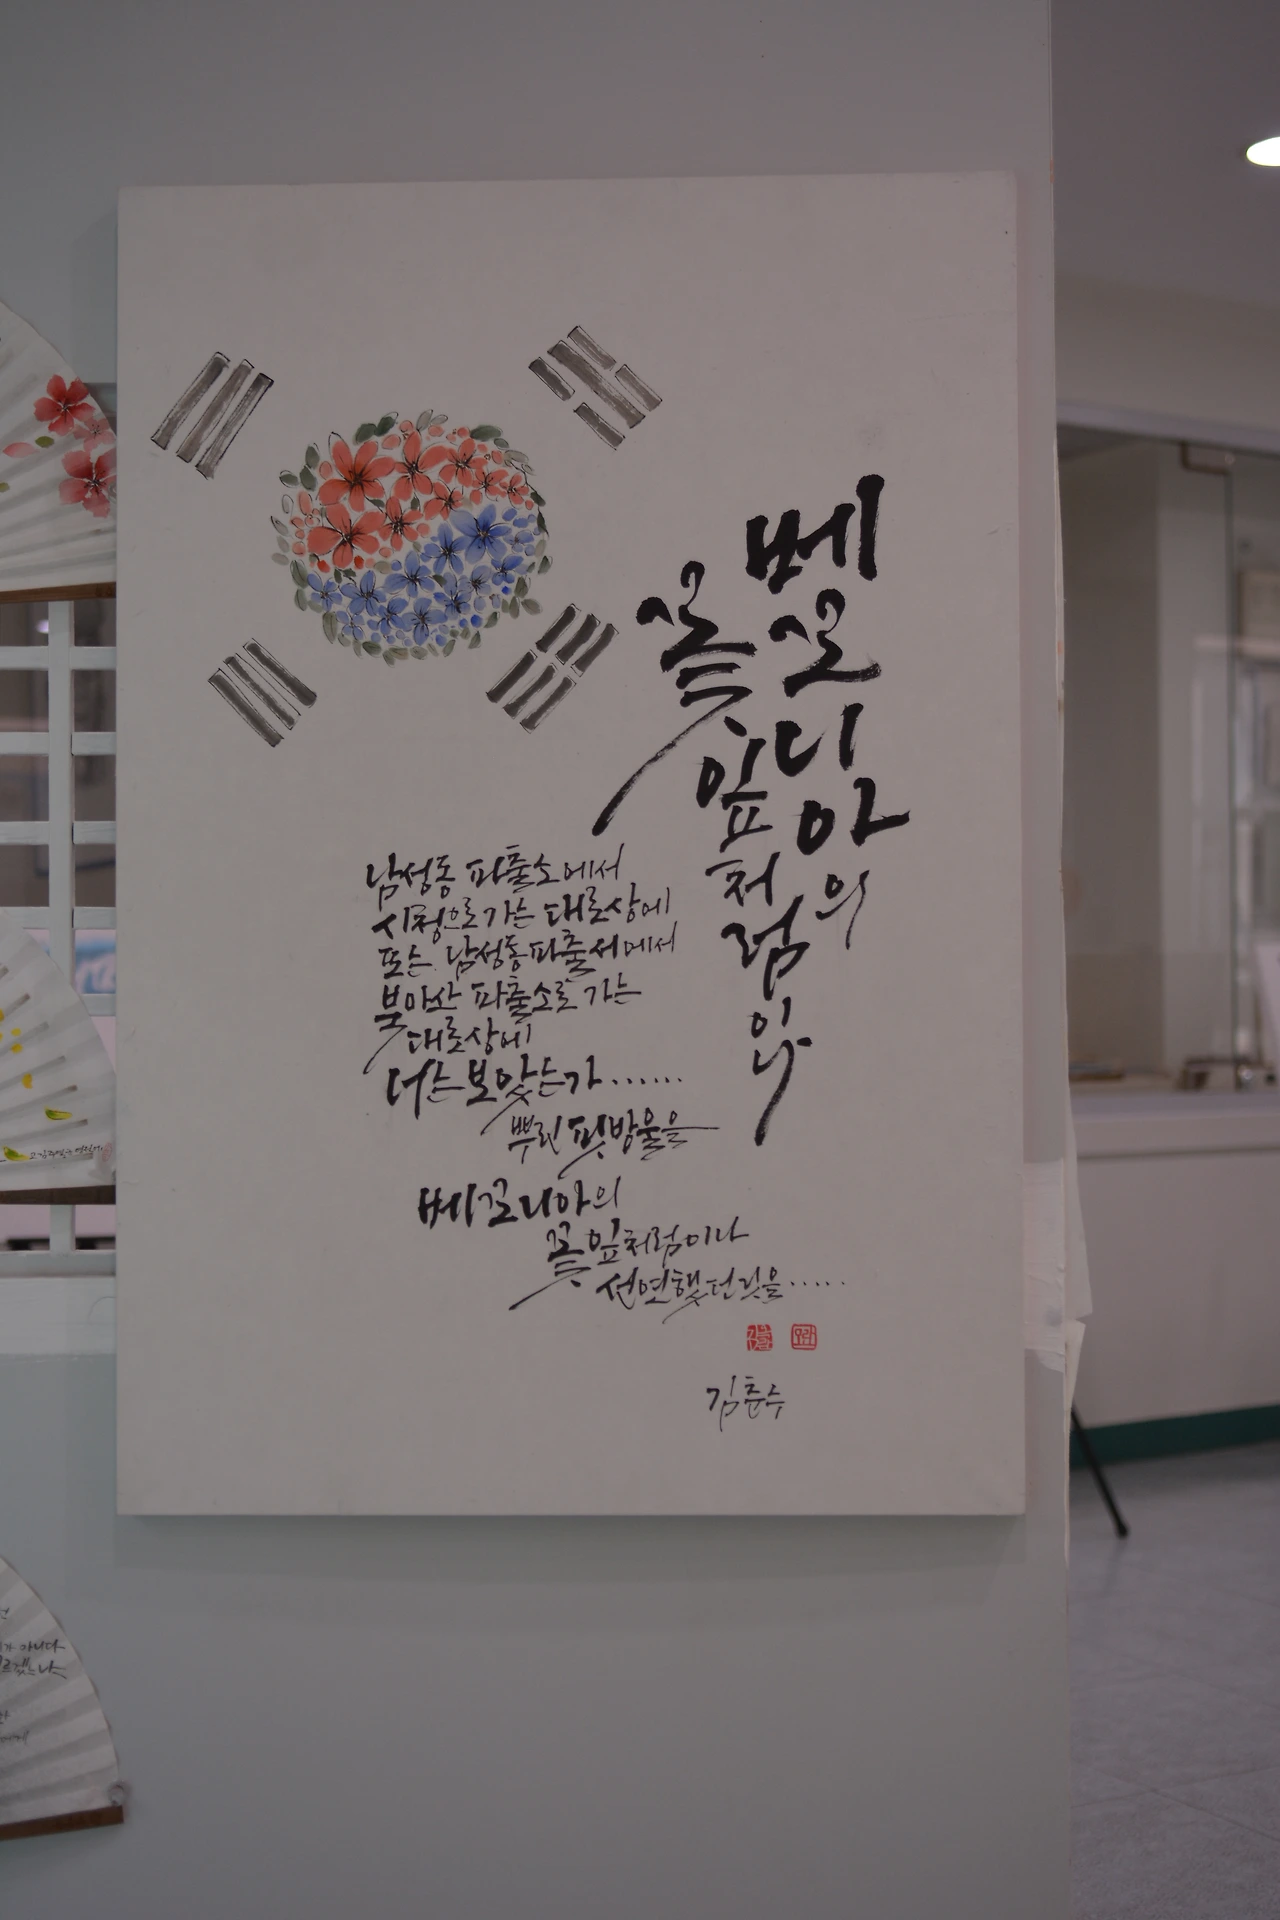 베꼬니아의
꽃잎처럼이나
남성동 파출소에서
시청으로 가는 대로상에
또는 남성동파출서에서
북마산 파출소로 가는
대로상에
너는 보았는가......
뿌린 핏방울을
베꼬니아의
꽃잎처럼이나
선연했던것을.....
김춘수
가 아니다